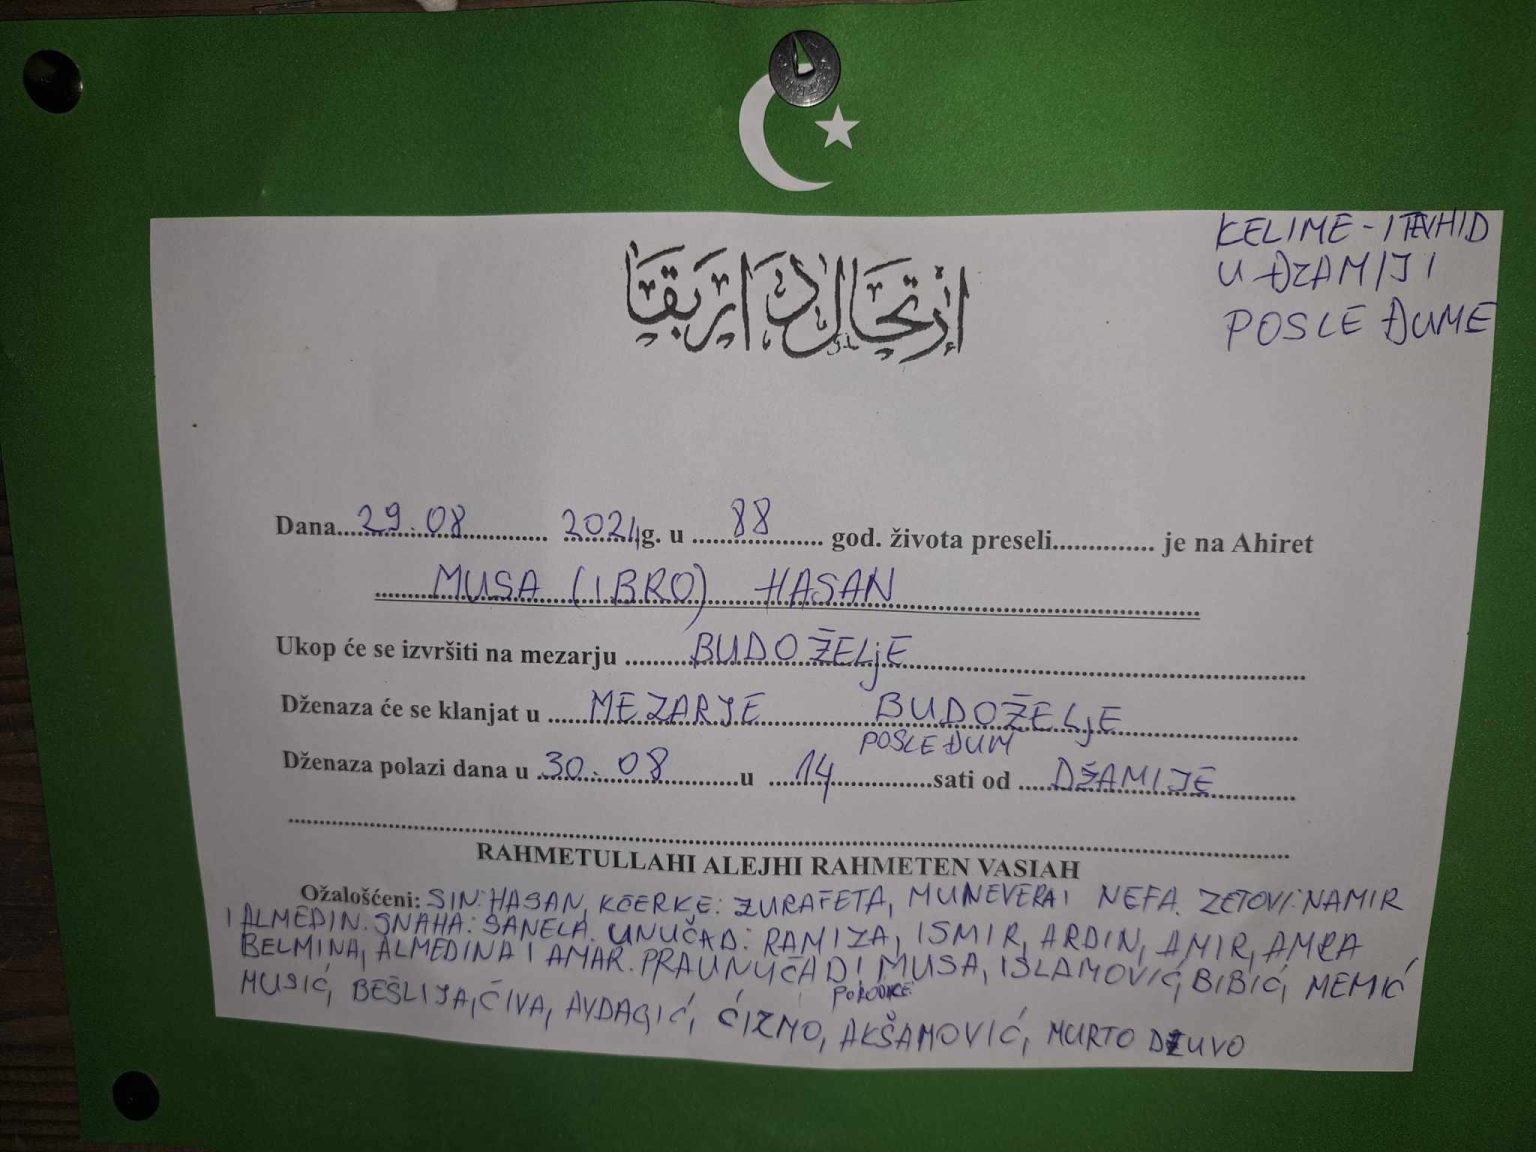 KELIME-I TEVHID
U ĐZAMIJI
POSLE ĐUME
إرتحال دار بقا
Dana...29.08........... 2024g. u ...88... god. života preseli.............. je na Ahiret
MUSA (IBRO) HASAN
Ukop će se izvršiti na mezarju ...BUDOŽELjE
Dženaza će se klanjat u ...MEZARJE BUDOŽELjE
POSLE ĐUM
Dženaza polazi dana u 30.08 ...u ...14...sati od ...DŽAMIJE
RAHMETULLAHI ALEJHI RAHMETEN VASIAH
Ožalošćeni: SIN: HASAN, KĆERKE: ZURAFETA, MUNEVERA I NEFA. ZETOVI: NAMIR
I ALMEDIN. SNAHA: SANELA. UNUČAD: RAMIZA, ISMIR, ARDIN, AMIR, AMRA
BELMINA, ALMEDINA I AMAR. PRAUNUČAD! MUSA, ISLAMOVIĆ, BIBIĆ, MEMIĆ
PORODICE
MUSIĆ, BEŠLIJA, ČIVA, AVDAGIĆ, ĆIZMO, AKŠAMOVIĆ, MURTO DŽUVO